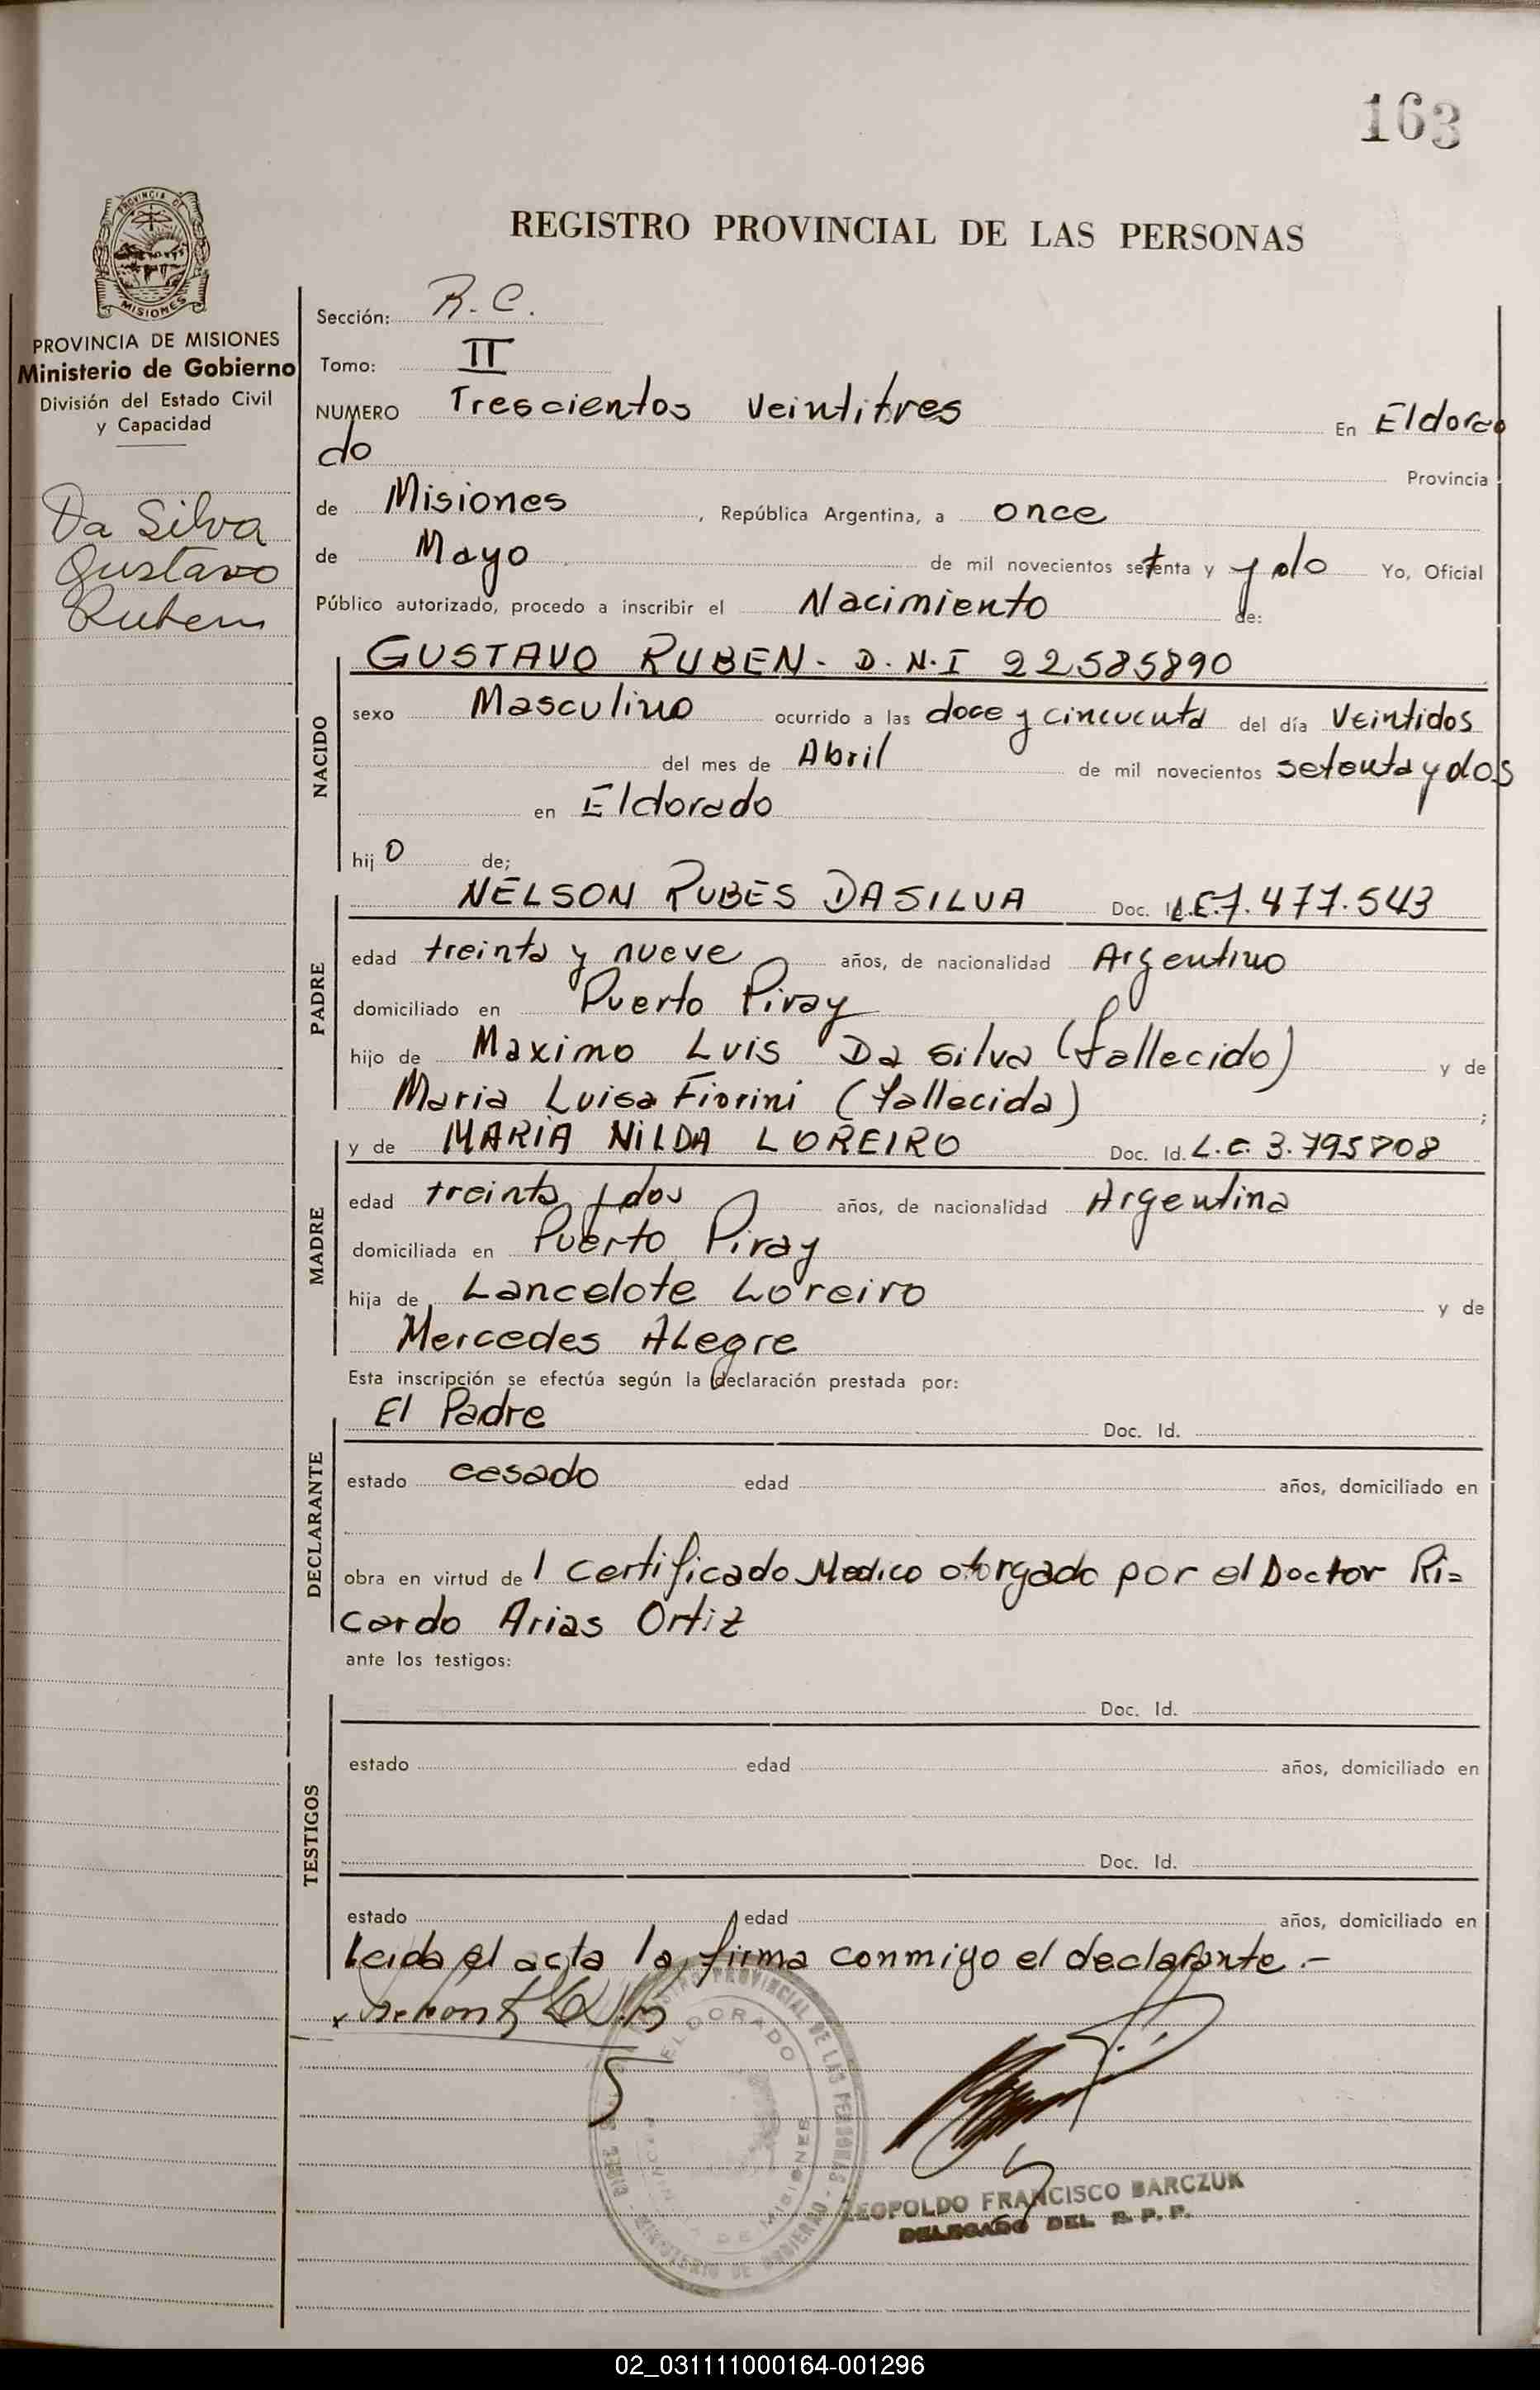 163
PROVINCIA DE
MISIONES
PROVINCIA DE MISIONES
Ministerio de Gobierno
División del Estado Civil
y Capacidad
Da Silva
Gustavo
Ruben
REGISTRO PROVINCIAL DE LAS PERSONAS
Sección: R.C.
Tomo: II
NUMERO Trescientos veintitres En Eldora
do Provincia
de Misiones, República Argentina, a once
de Mayo de mil novecientos setenta y y do Yo, Oficial
Público autorizado, procedo a inscribir el Nacimiento de:
NACIDO
GUSTAVO RUBEN- D.N.I 22585890
sexo Masculino ocurrido a las doce y cincuenta del día Veintidos
del mes de Abril de mil novecientos setenta y dos
en Eldorado
hijo de;
PADRE
NELSON RUBES DASILVA Doc. Id. L.E.7.477.543
edad treinta y nueve años, de nacionalidad Argentino
domiciliado en Puerto Piray
hijo de Maximo Luis Da Silva (fallecido) y de
Maria Luisa Fiorini (fallecida) ;
MADRE
y de MARIA NILDA LOREIRO Doc. Id. L.C. 3.795808
edad treinta y dos años, de nacionalidad Argentina
domiciliada en Puerto Piray
hija de Lancelote Loreiro y de
Mercedes ALegre
Esta inscripción se efectúa según la declaración prestada por:
DECLARANTE
El Padre Doc. Id.
estado cesado edad años, domiciliado en
obra en virtud de 1 Certificado Medico otorgado por el Doctor Ri=
cardo Arias Ortiz
ante los testigos:
TESTIGOS
Doc. Id.
estado edad años, domiciliado en
Doc. Id.
estado edad años, domiciliado en
Leida el acta la firma conmigo el declarante.-
REGISTRO PROVINCIAL DE LAS PERSONAS - MINISTERIO DE GOBIERNO
ELDORADO
PROVINCIA DE MISIONES
LEOPOLDO FRANCISCO BARCZUK
DELEGADO DEL R. P. P.
02_031111000164-001296